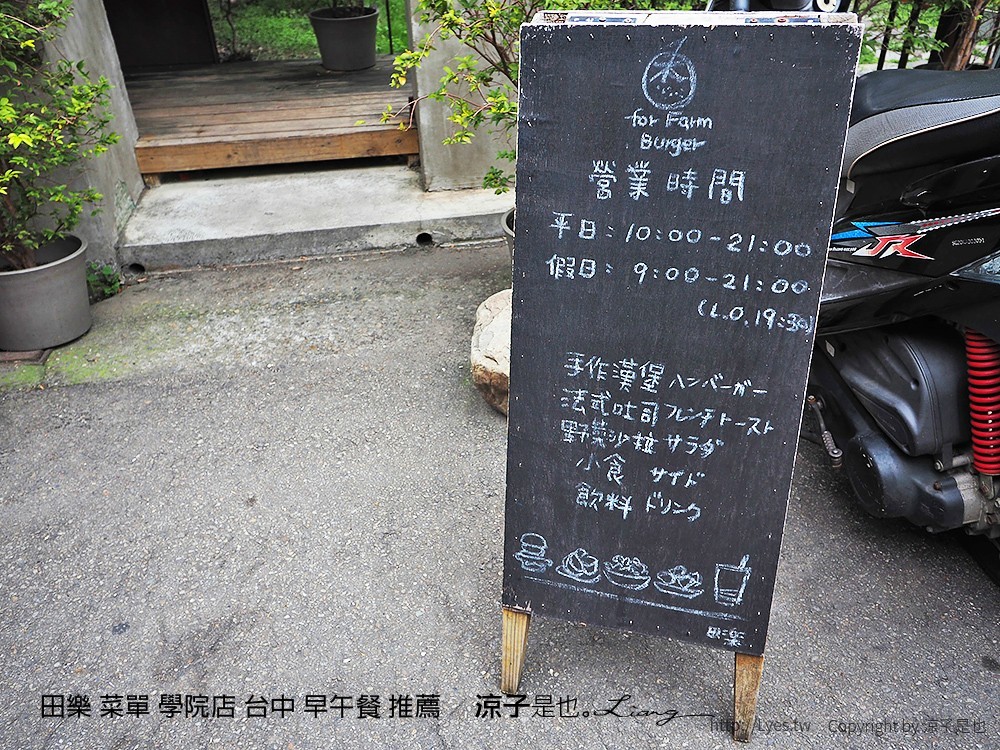 for Farm
Burger
營業時間
平日: 10:00-21:00
假日: 9:00-21:00
(L.O. 19:30)
手作漢堡 ハンバーガー
法式吐司 フレンチトースト
野菜沙拉 サラダ
小食 サイド
飲料 ドリンク
田樂
TR
田樂 菜單 學院店 台中 早午餐 推薦 / 涼子是也。Liang
http://Lyes.tw Copyright by 涼子是也